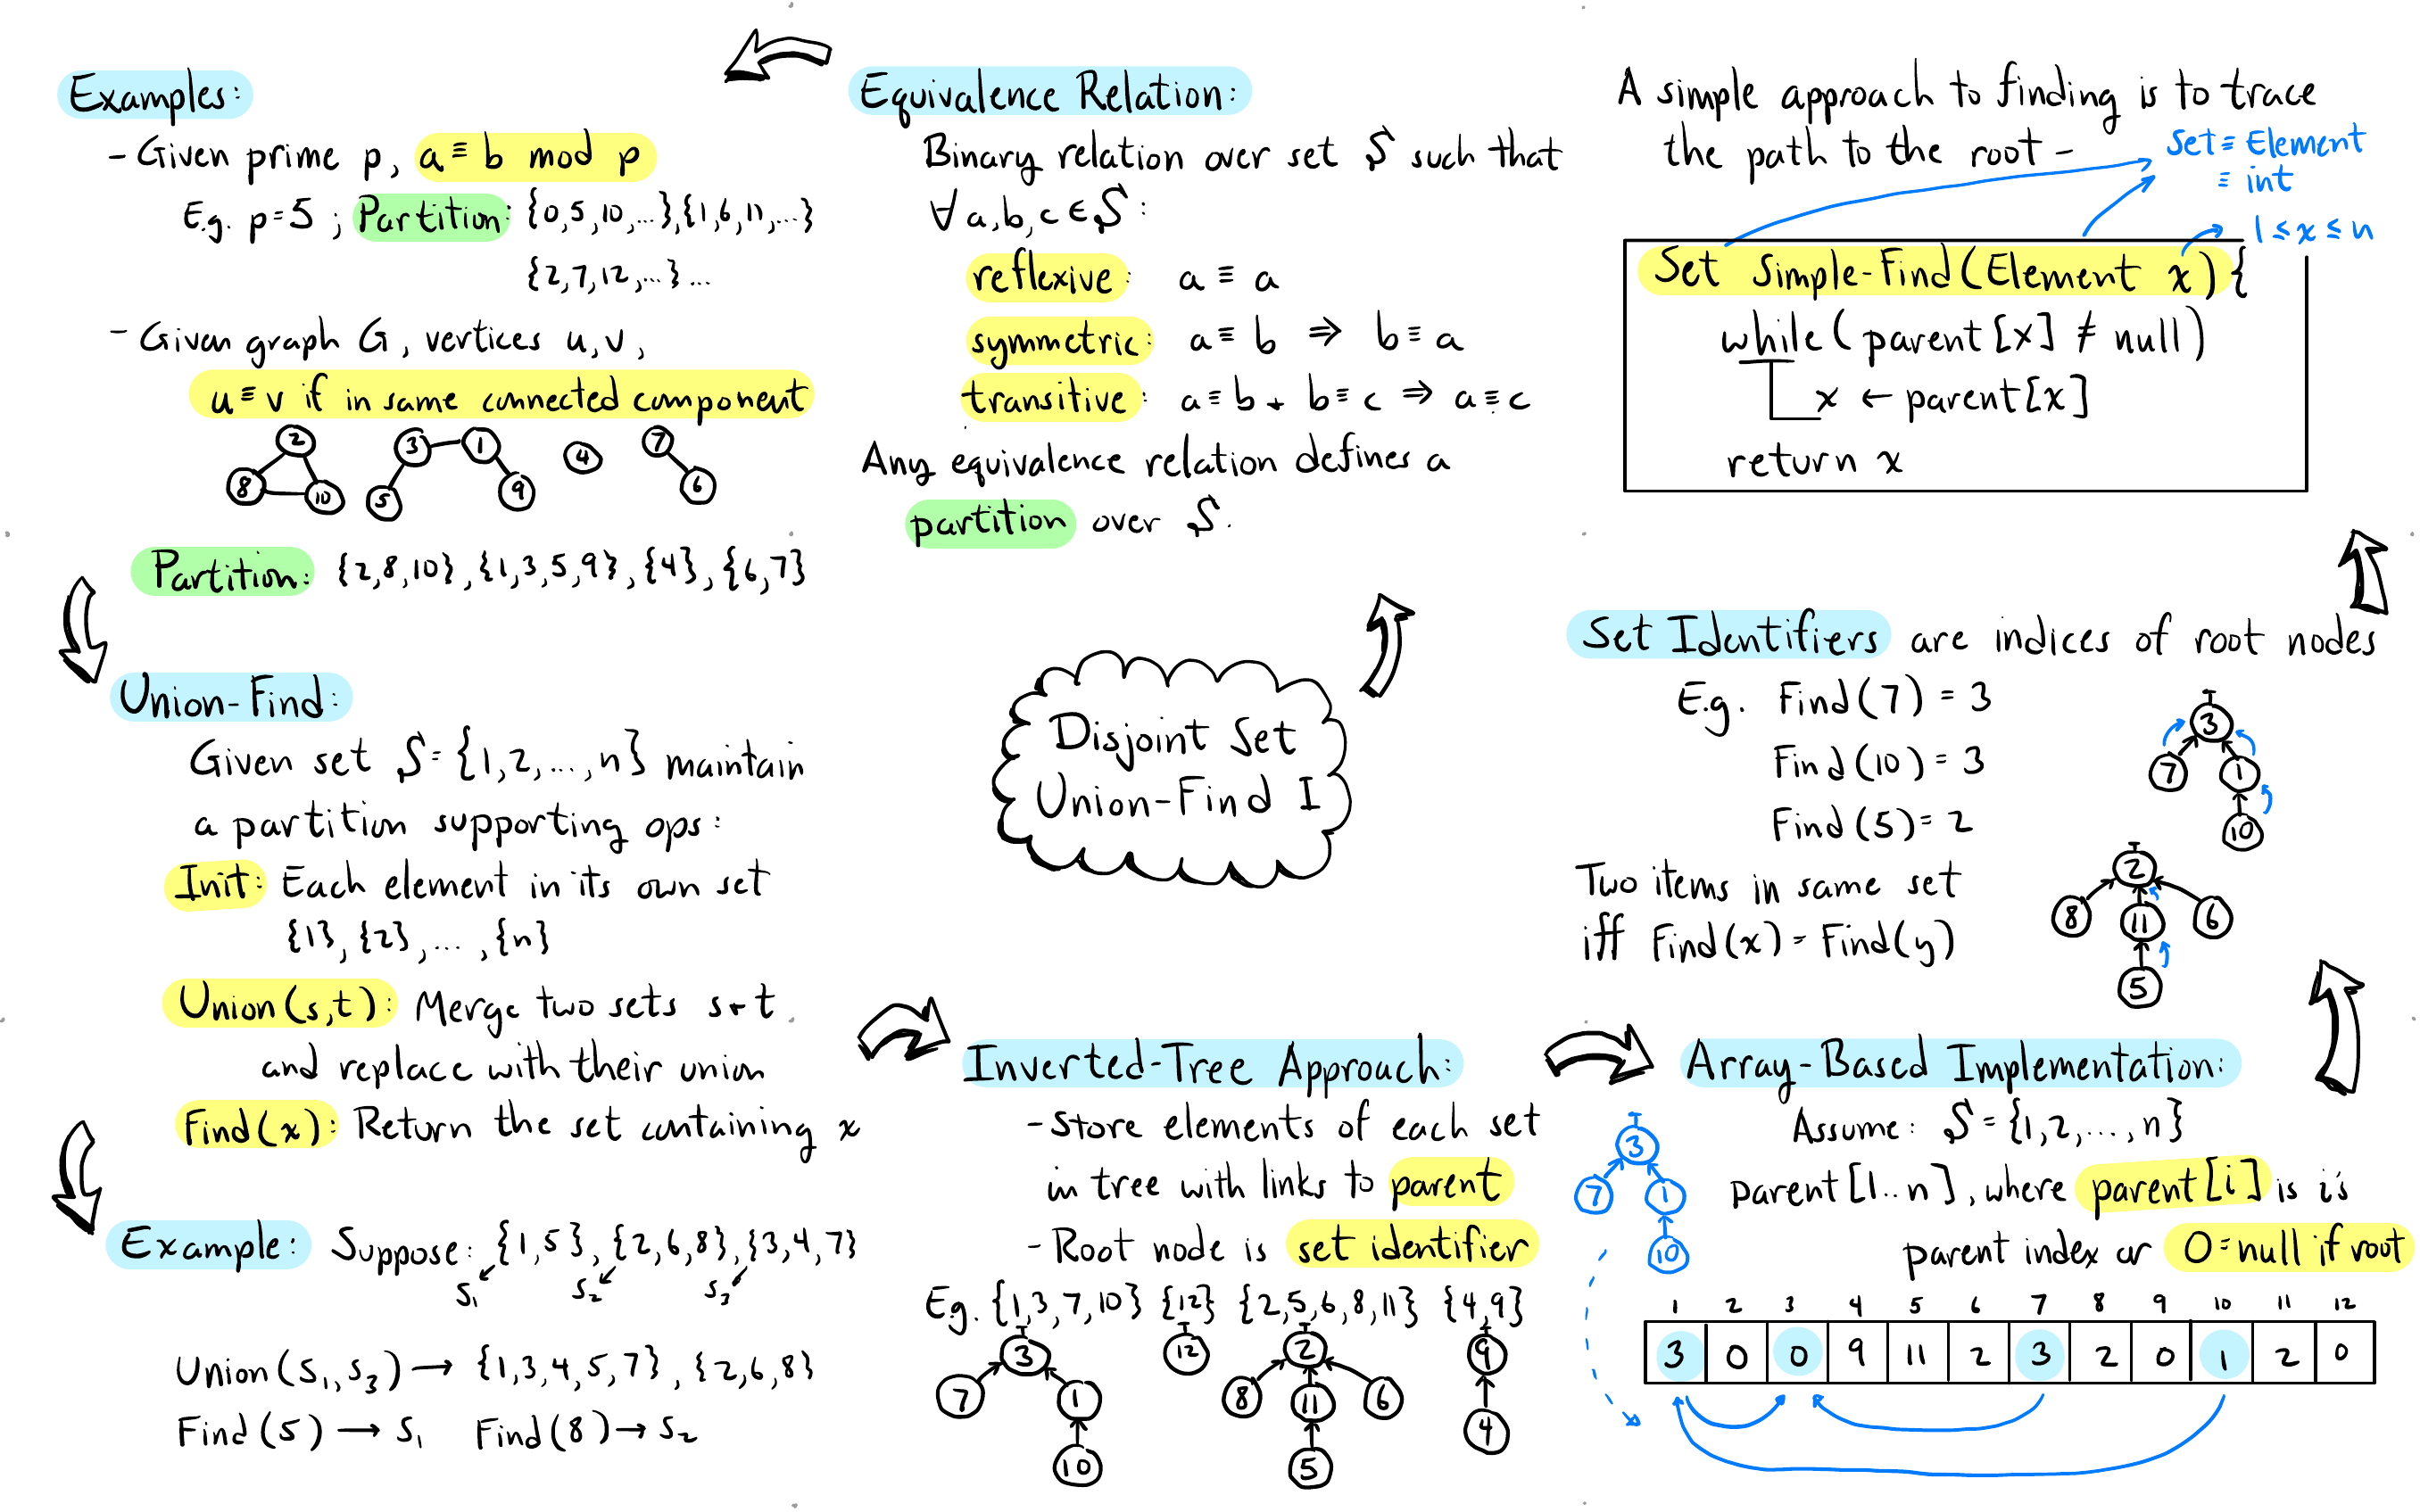 Disjoint Set
Union-Find I
Equivalence Relation:
Binary relation over set S such that
∀a,b,c∈S:
reflexive: a ≡ a
symmetric: a ≡ b ⇒ b ≡ a
transitive: a ≡ b + b ≡ c ⇒ a ≡ c
Any equivalence relation defines a
partition over S.
Examples:
- Given prime p, a ≡ b mod p
E.g. p=5 ; Partition: {0,5,10,...},{1,6,11,...}
{2,7,12,...} ...
- Given graph G, vertices u,v,
u ≡ v if in same connected component
2
8 10
3 1
5 9
4
7
6
Partition: {2,8,10},{1,3,5,9},{4},{6,7}
Union-Find:
Given set S={1,2,...,n} maintain
a partition supporting ops:
Init: Each element in its own set
{1},{2},...,{n}
Union(s,t): Merge two sets s + t
and replace with their union
Find(x): Return the set containing x
Example: Suppose: {1,5},{2,6,8},{3,4,7}
S₁ S₂ S₃
Union(S₁,S₃) → {1,3,4,5,7}, {2,6,8}
Find(5) → S₁ Find(8) → S₂
Inverted-Tree Approach:
- Store elements of each set
in tree with links to parent
- Root node is set identifier
E.g. {1,3,7,10} {12} {2,5,6,8,11} {4,9}
3 12 2 9
7 1 8 11 6 4
10 5
Array-Based Implementation:
Assume: S={1,2,...,n}
parent[1..n], where parent[i] is i's
parent index or 0=null if root
3
7 1
10
1 2 3 4 5 6 7 8 9 10 11 12
3 0 0 9 11 2 3 2 0 1 2 0
Set Identifiers are indices of root nodes
E.g. Find(7) = 3
Find(10) = 3
Find(5) = 2
3
7 1
10
Two items in same set
iff Find(x) = Find(y)
2
8 11 6
5
A simple approach to finding is to trace
the path to the root -
Set ≡ Element
≡ int
1 ≤ x ≤ n
Set Simple-Find(Element x){
while(parent[x] ≠ null)
x ← parent[x]
return x